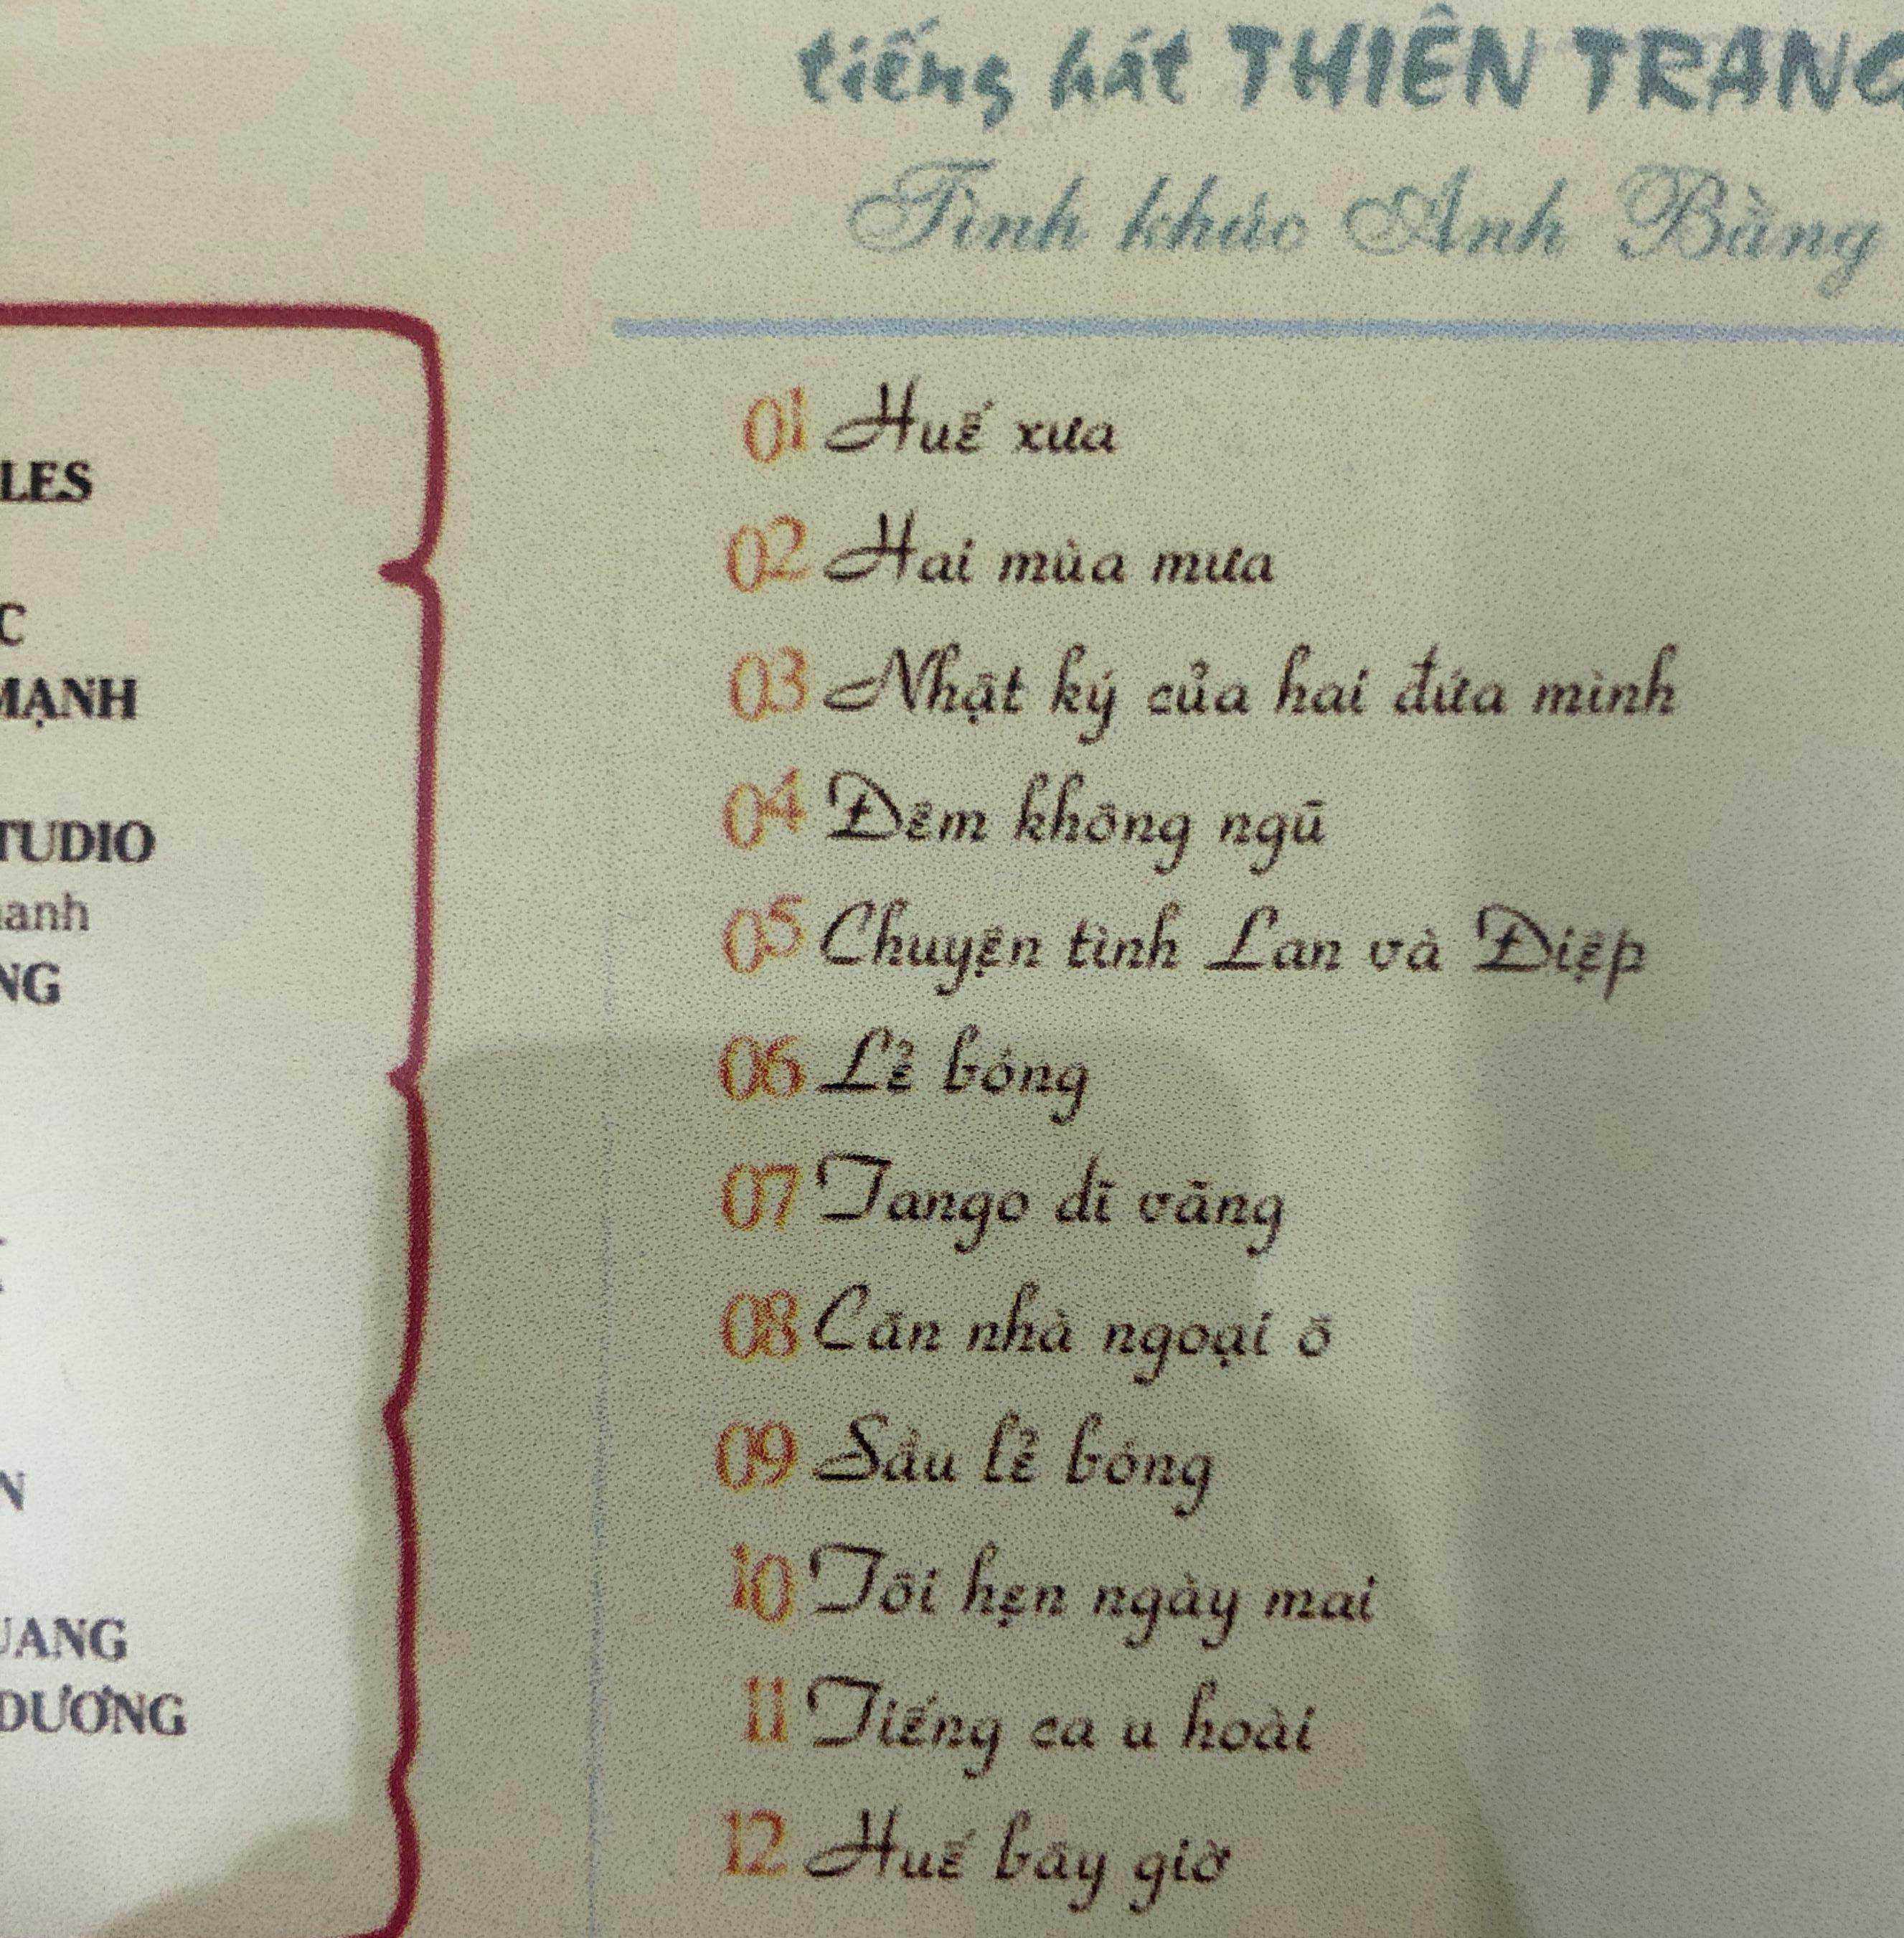 tiếng hát THIÊN TRANG
Tình khúc Anh Bằng
LES
C
MẠNH
TUDIO
anh
NG
N
UANG
DƯƠNG
01 Huế xưa
02 Hai mùa mưa
03 Nhật ký của hai đứa mình
04 Đêm không ngũ
05 Chuyện tình Lan và Điệp
06 Lẻ bóng
07 Tango dĩ vãng
08 Căn nhà ngoại ô
09 Sầu lẻ bóng
10 Tôi hẹn ngày mai
11 Tiếng ca u hoài
12 Huế bây giờ